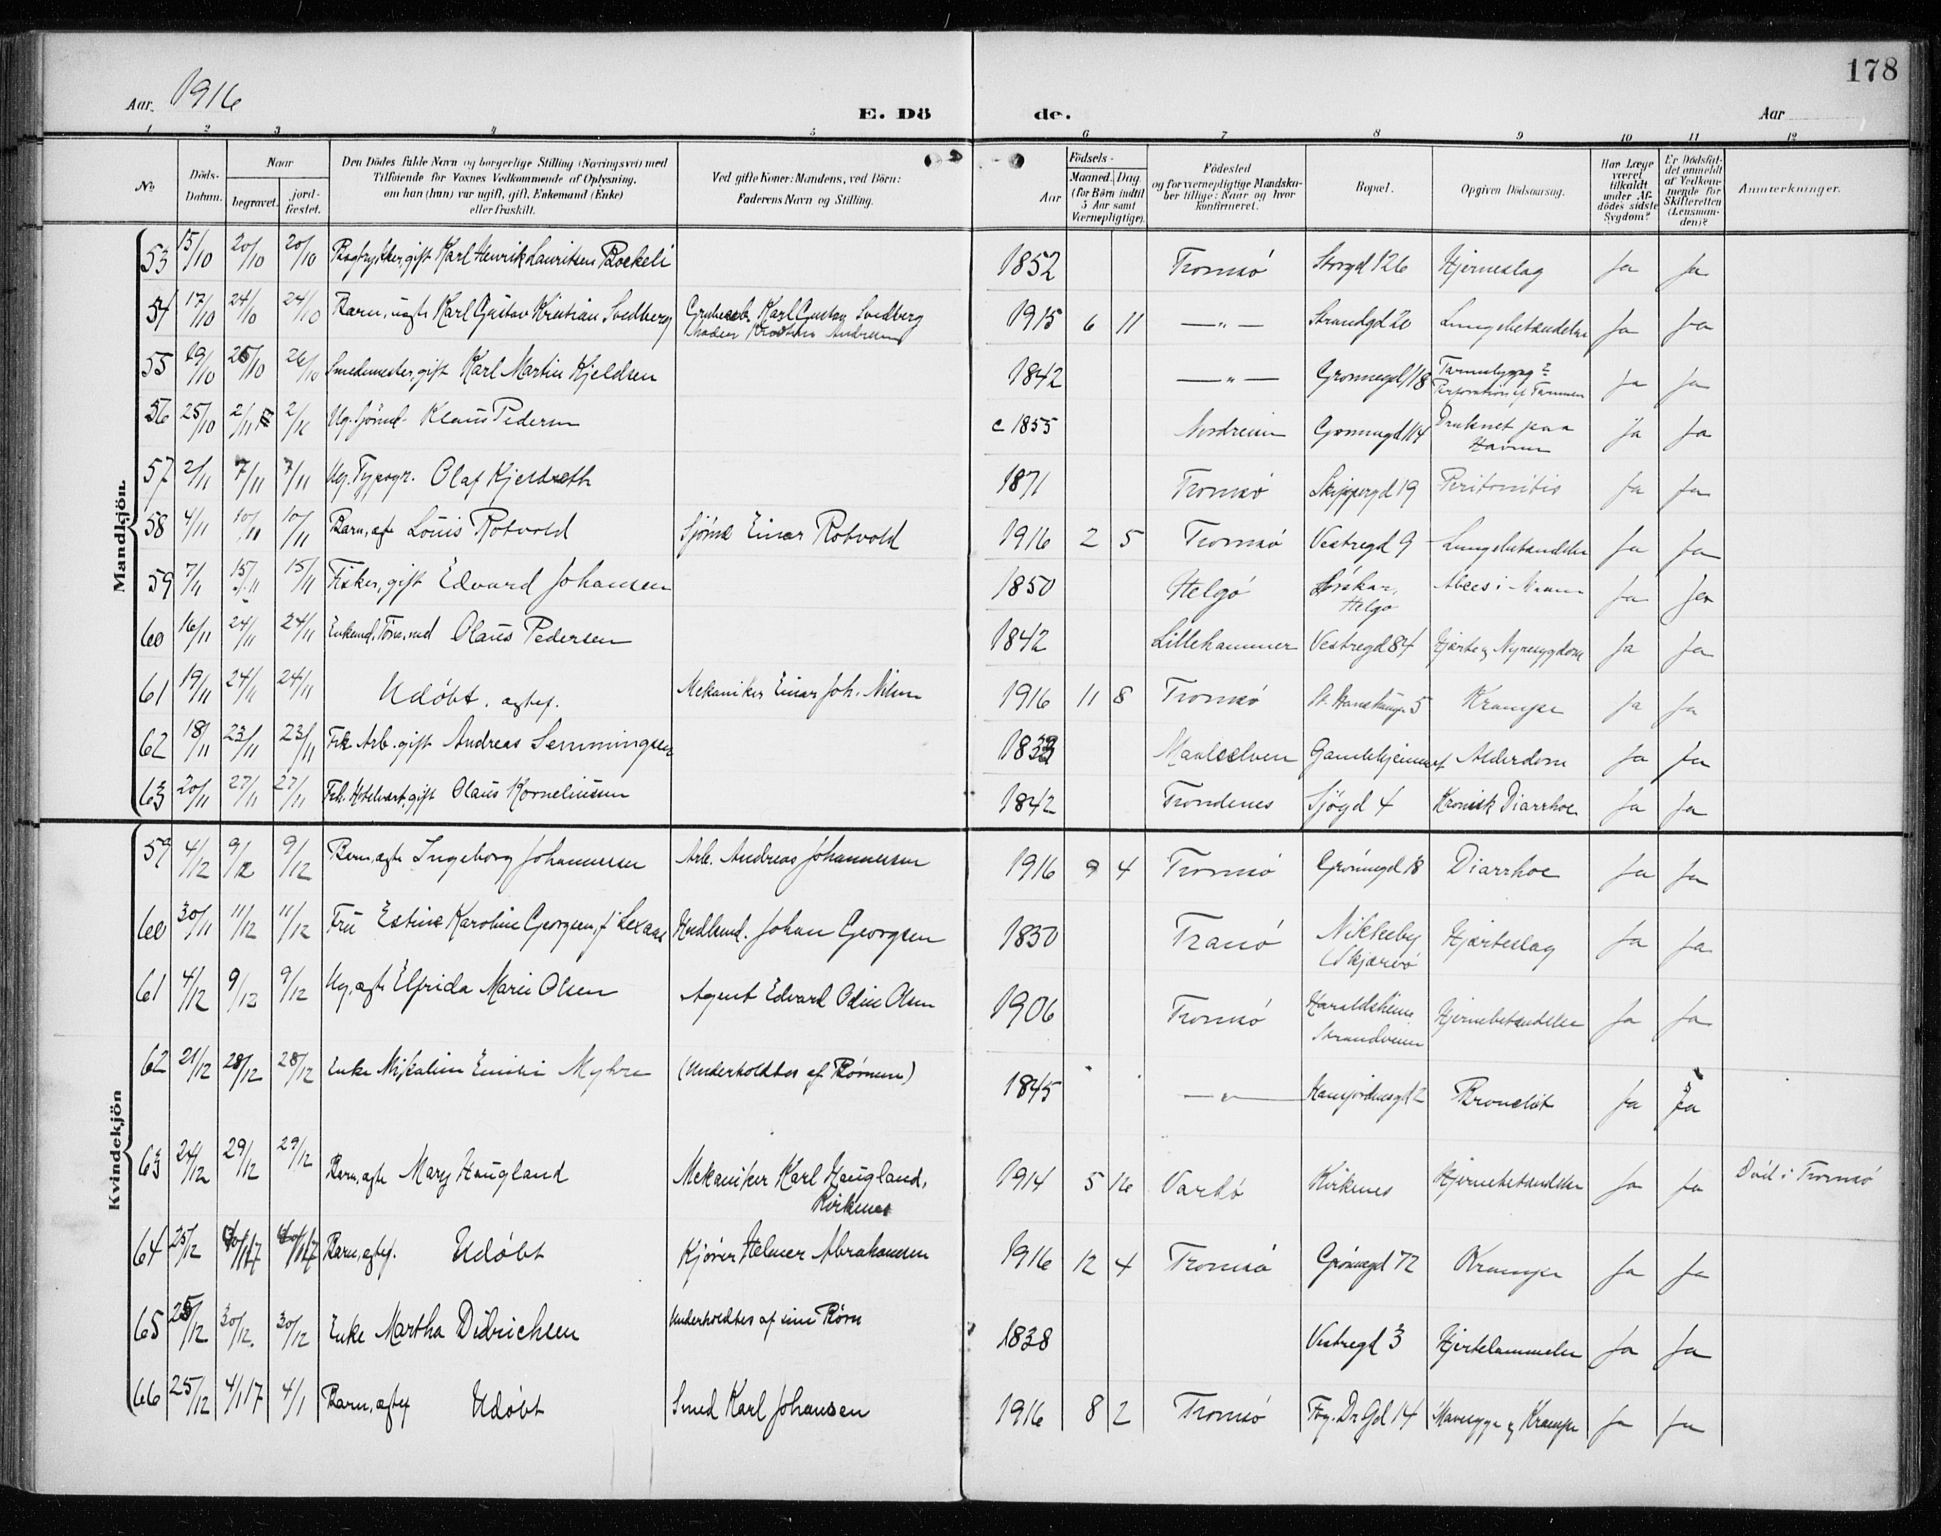 178
Aar 1916
E. Dö
de.
Aar
1 2 3 4 5 6 7 8 9 10 11 12
No
Döds-Datum.
Naar
begravet.
jordfæstet.
Den Dödes fulde Navn og borgerlige Stilling (Næringsvei) med Tilföiende for Voxnes Vedkommende af Oplysning, om han (hun) var ugift, gift, Enkemand (Enke) eller fraskilt.
Ved gifte Koner: Mandens, ved Börn: Faderens Navn og Stilling.
Födsels-
Aar
Maaned. Dag
(for Börn indtil 5 Aar samt Værnepligtige).
Födested og for værnepligtige Mandskaber tillige: Naar og hvor konfirmeret.
Bopæl.
Opgiven Dödsaarsag.
Har Læge været tilkaldt under Afdödes sidste Sygdom?
Er Dödsfaldet anmeldt af Vedkommende for Skifteretten (Lensmanden)?
Anmærkninger.
Mandkjön.
53 15/10 20/10 20/10 Bogtrykker, gift Karl Henrik Lauritsen Boekeli 1852 Tromsö Storgd 126 Hjerneslag Ja Ja
54 17/10 24/10 24/10 Barn, uægte Karl Gustav Kristian Svedberg Karl Gustav Svedberg 1915 6 11 —„— Strandgd 20 Lungebetændelse Ja Ja
55 19/10 26/10 26/10 Smedemester, gift Karl Martin Kjeldsen 1842 —„— Grönnegd 118 Perforation af Tarmen Ja Ja
56 25/10 2/11 2/11 Ug. Sjömd. Klaus Pedersen c 1855 Nordreisen Grönnegd 114 Druknet paa Havnen Ja Ja
57 2/11 7/11 7/11 Ug. Typogr. Olaf Kjeldseth 1871 Tromsö Skippergd 19 Peritonitis Ja Ja
58 4/11 10/11 10/11 Barn, ægte Louis Rotvold Sjömd Einar Rotvold 1916 2 5 Tromsö Vestregd 9 Lungebetændelse Ja Ja
59 7/11 15/11 15/11 Fisker, gift Edvard Johansen 1850 Helgö Helgö Ja Ja
60 16/11 24/11 24/11 Enkemd. Olaus Pedersen 1842 Lillehammer Vestregd 84 Hjerte og Nyresygdom Ja Ja
61 19/11 24/11 24/11 Udöbt. ægtef. Mekaniker Einar Joh. Nilsen 1916 11 8 Tromsö St. Hanshaugen 5 Krampe Ja Ja
62 18/11 23/11 23/11 Fhv. Arb. gift Andreas Semmingsen Maalselven Gamlehjemmet Alderdom Ja Ja
63 20/11 27/11 27/11 Fhv. Hotelvært, gift Olaus Korneliussen 1842 Trondenes Sjögd 4 Kronisk Diarrhoe Ja Ja
Kvindekjön
59 4/12 9/12 9/12 Barn, ægte Ingeborg Johannessen Arb. Andreas Johannessen 1916 9 4 Tromsö Grönnegd 18 Diarrhoe Ja Ja
60 30/11 11/12 11/12 Fru Karoline Georgsen, f Johan Georgsen 1850 Tranö Nikkeby (Skjærvö Hjerteslag Ja Ja
61 4/12 9/12 9/12 Ug, ægte Elfrida Marie Olsen Agent Edvard Odin Olsen 1906 Tromsö Haraldsheim Strandveien Hjernebetændelse Ja Ja
62 21/12 28/12 28/12 Enke Nikoline Emilie Myhre (Underholdtes af Börnene) 1845 —„— Bronchit Ja Ja
63 24/12 29/12 29/12 Barn, ægte Mary Haugland Mekaniker Karl Haugland, Kirkenes 1914 5 16 Vardö Kirkenes Hjernebetændelse Ja Ja Död i Tromsö
64 25/12 Barn, ægtef. Udöbt Kjörer Helmer Abrahamsen 1916 12 4 Tromsö Grönnegd 72 Krampe Ja Ja
65 25/12 30/12 30/12 Enke Martha Didrichsen Underholdtes af sine Börn 1838 Vestregd 3 Hjertelammelse Ja Ja
66 25/12 4/1 17 4/1 Barn, ægtef Udöbt Smed Karl Johansen 1916 8 2 Tromsö Fog. Dr Gd 14 og Krampe Ja Ja